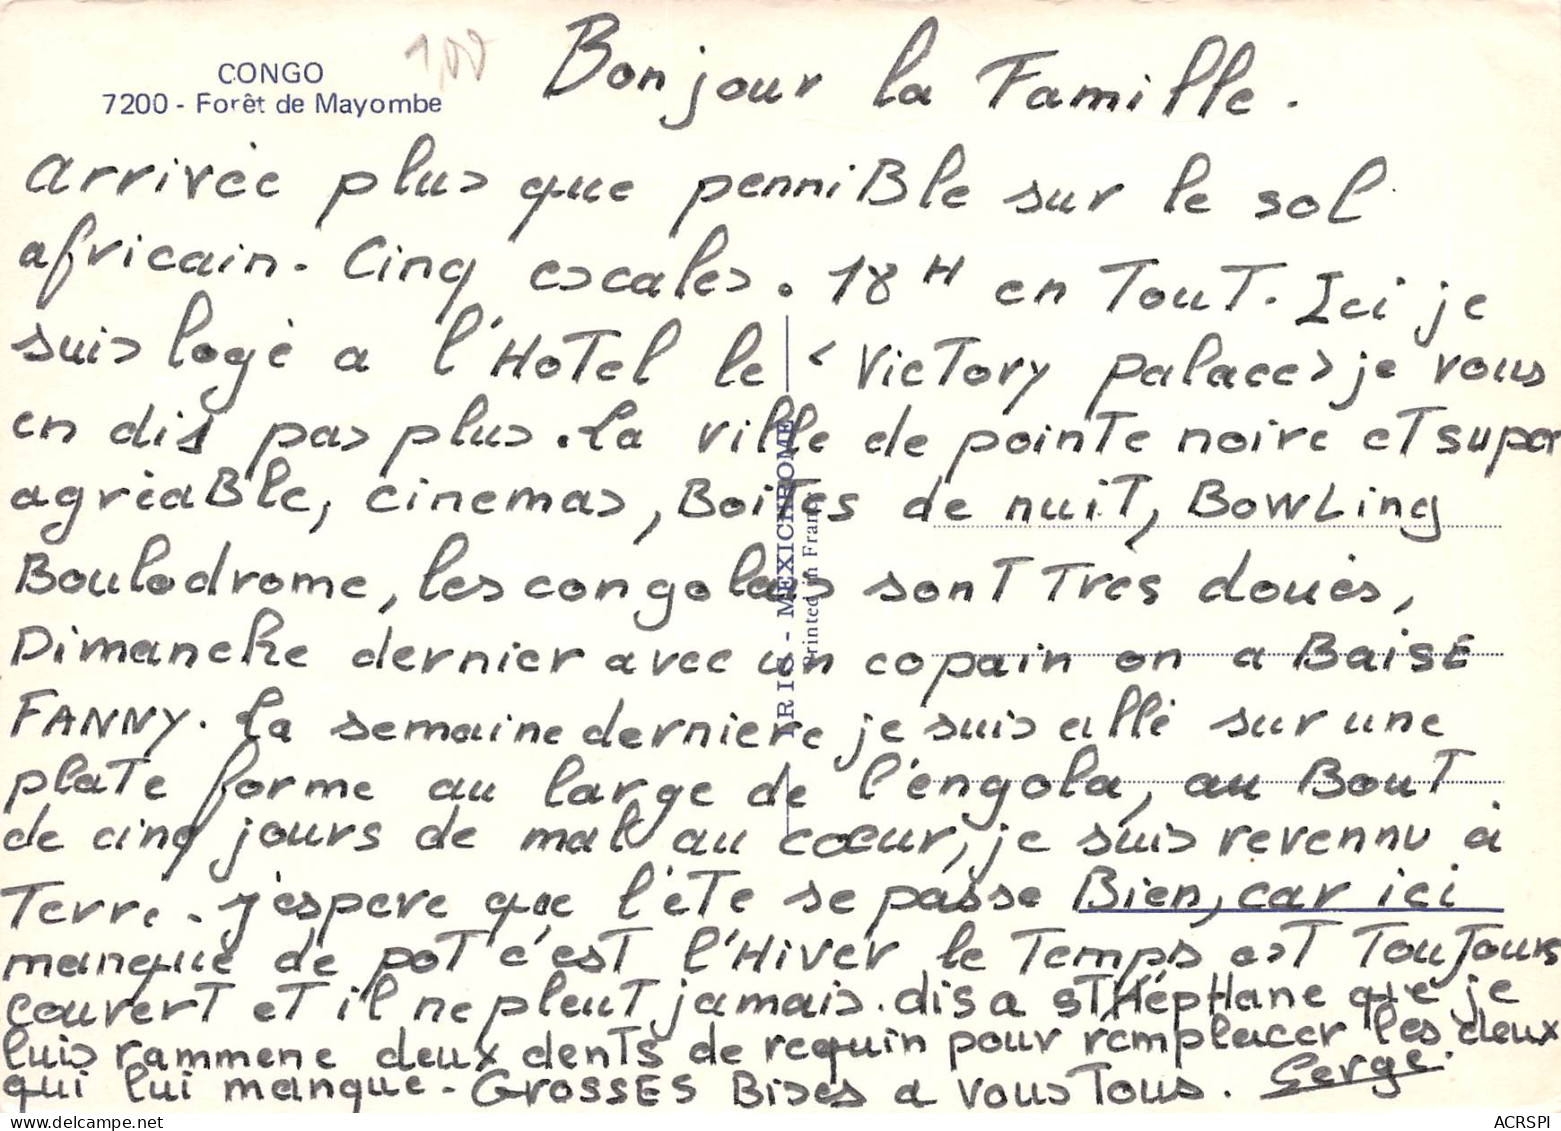 CONGO
7200 - Forêt de Mayombe
1,00
Bonjour la Famille.
arrivée plus que penniBle sur le sol
africain. Cinq escales. 18 H en TouT. Ici je
suis logé a l'HoTel le < VicTory palace > je vous
en dis pas plus. La ville de poinTe noire eT super
agréaBle, cinemas, BoiTes de nuiT, BowLing
Boulodrome, les congolais sonT Très doués,
Dimanche dernier avec un copain on a BaisE
FANNY. La semaine derniere je suis allé sur une
plaTe forme au large de l'éngola, au BouT
de cinq jours de mal au cœur, je suis revennu à
Terre. j'espere que l'éTé se passe Bien, car ici
manque de poT c'esT l'Hiver le Temps esT TouJours
couverT eT il ne pleuT jamais. dis a sTHépHane que je
luis rammene deux denTs de requin pour remplacer les deux
qui lui manque - GrossEs Bises a vous Tous. Serge.
IRIS - MEXICHROME
Printed in France
ACRSPI